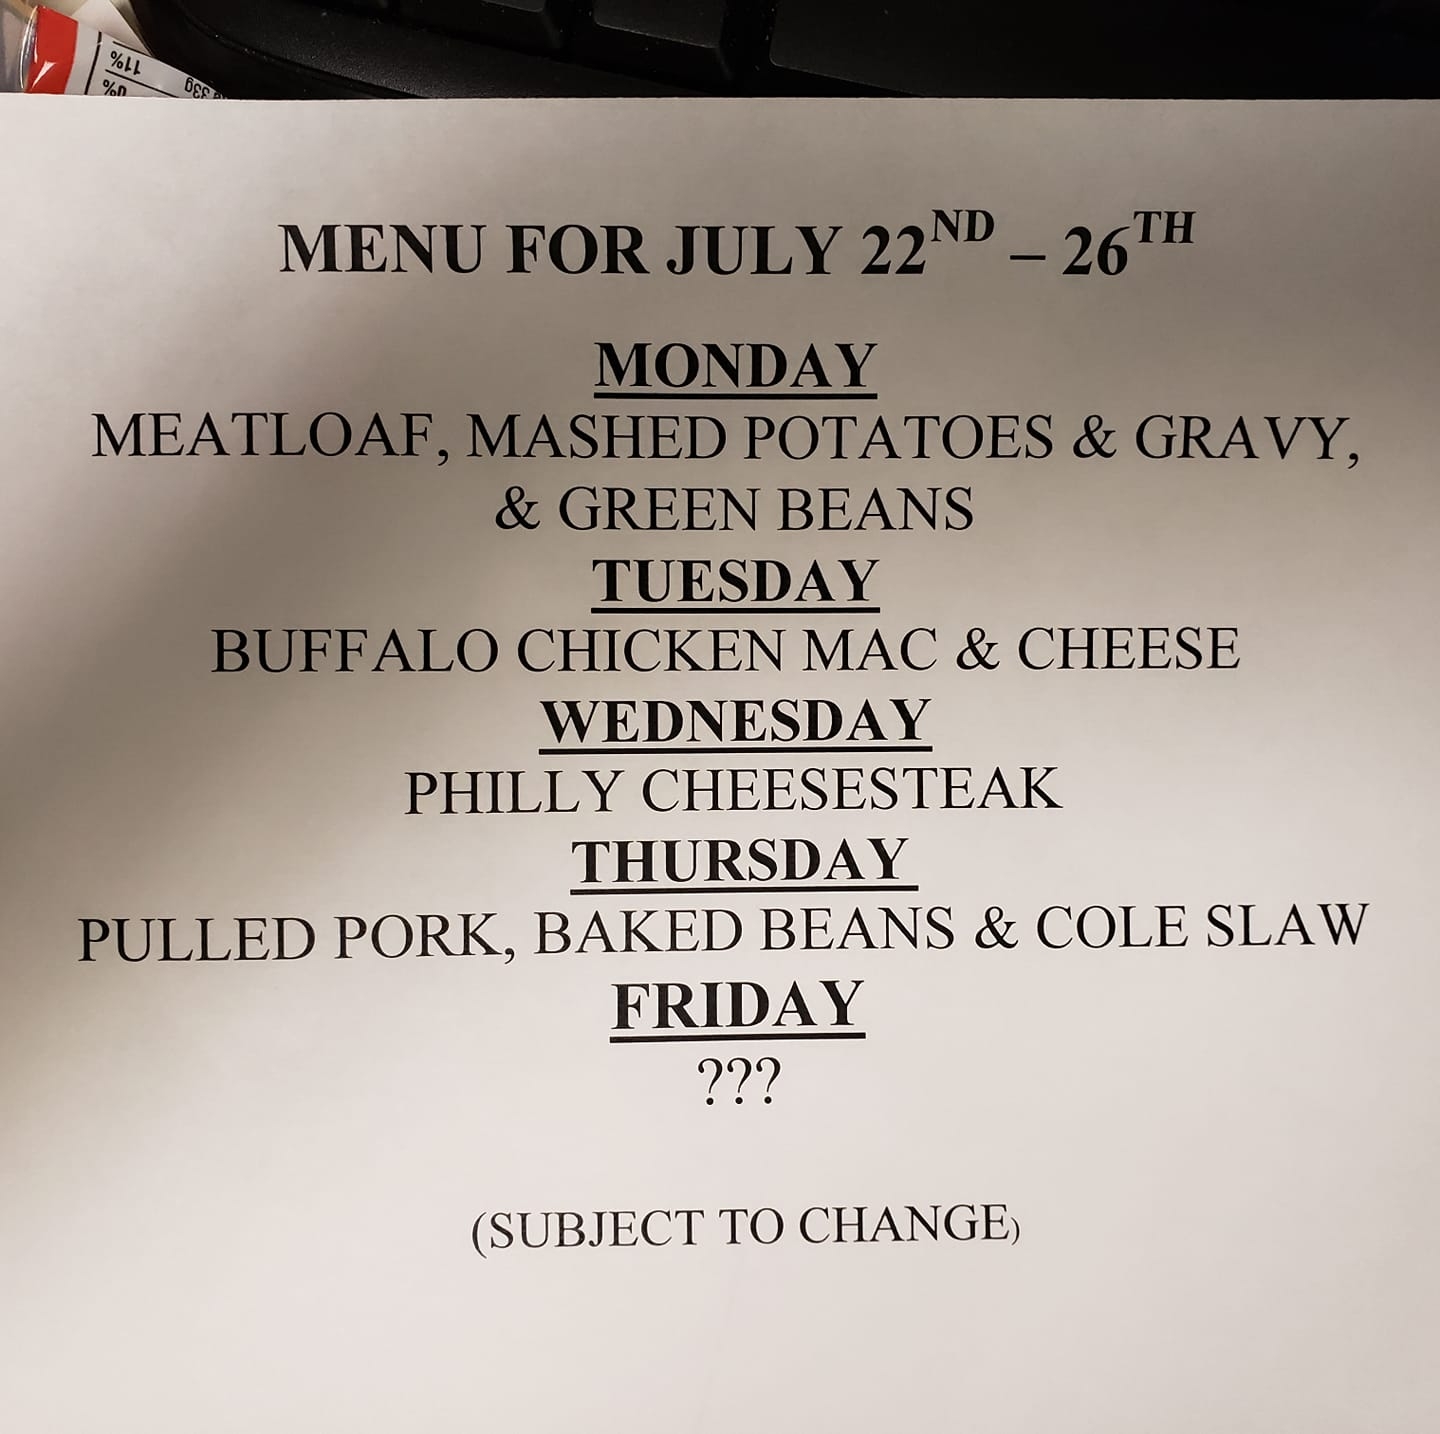 11%
0%
33g
MENU FOR JULY 22ND – 26TH
MONDAY
MEATLOAF, MASHED POTATOES & GRAVY,
& GREEN BEANS
TUESDAY
BUFFALO CHICKEN MAC & CHEESE
WEDNESDAY
PHILLY CHEESESTEAK
THURSDAY
PULLED PORK, BAKED BEANS & COLE SLAW
FRIDAY
???
(SUBJECT TO CHANGE)